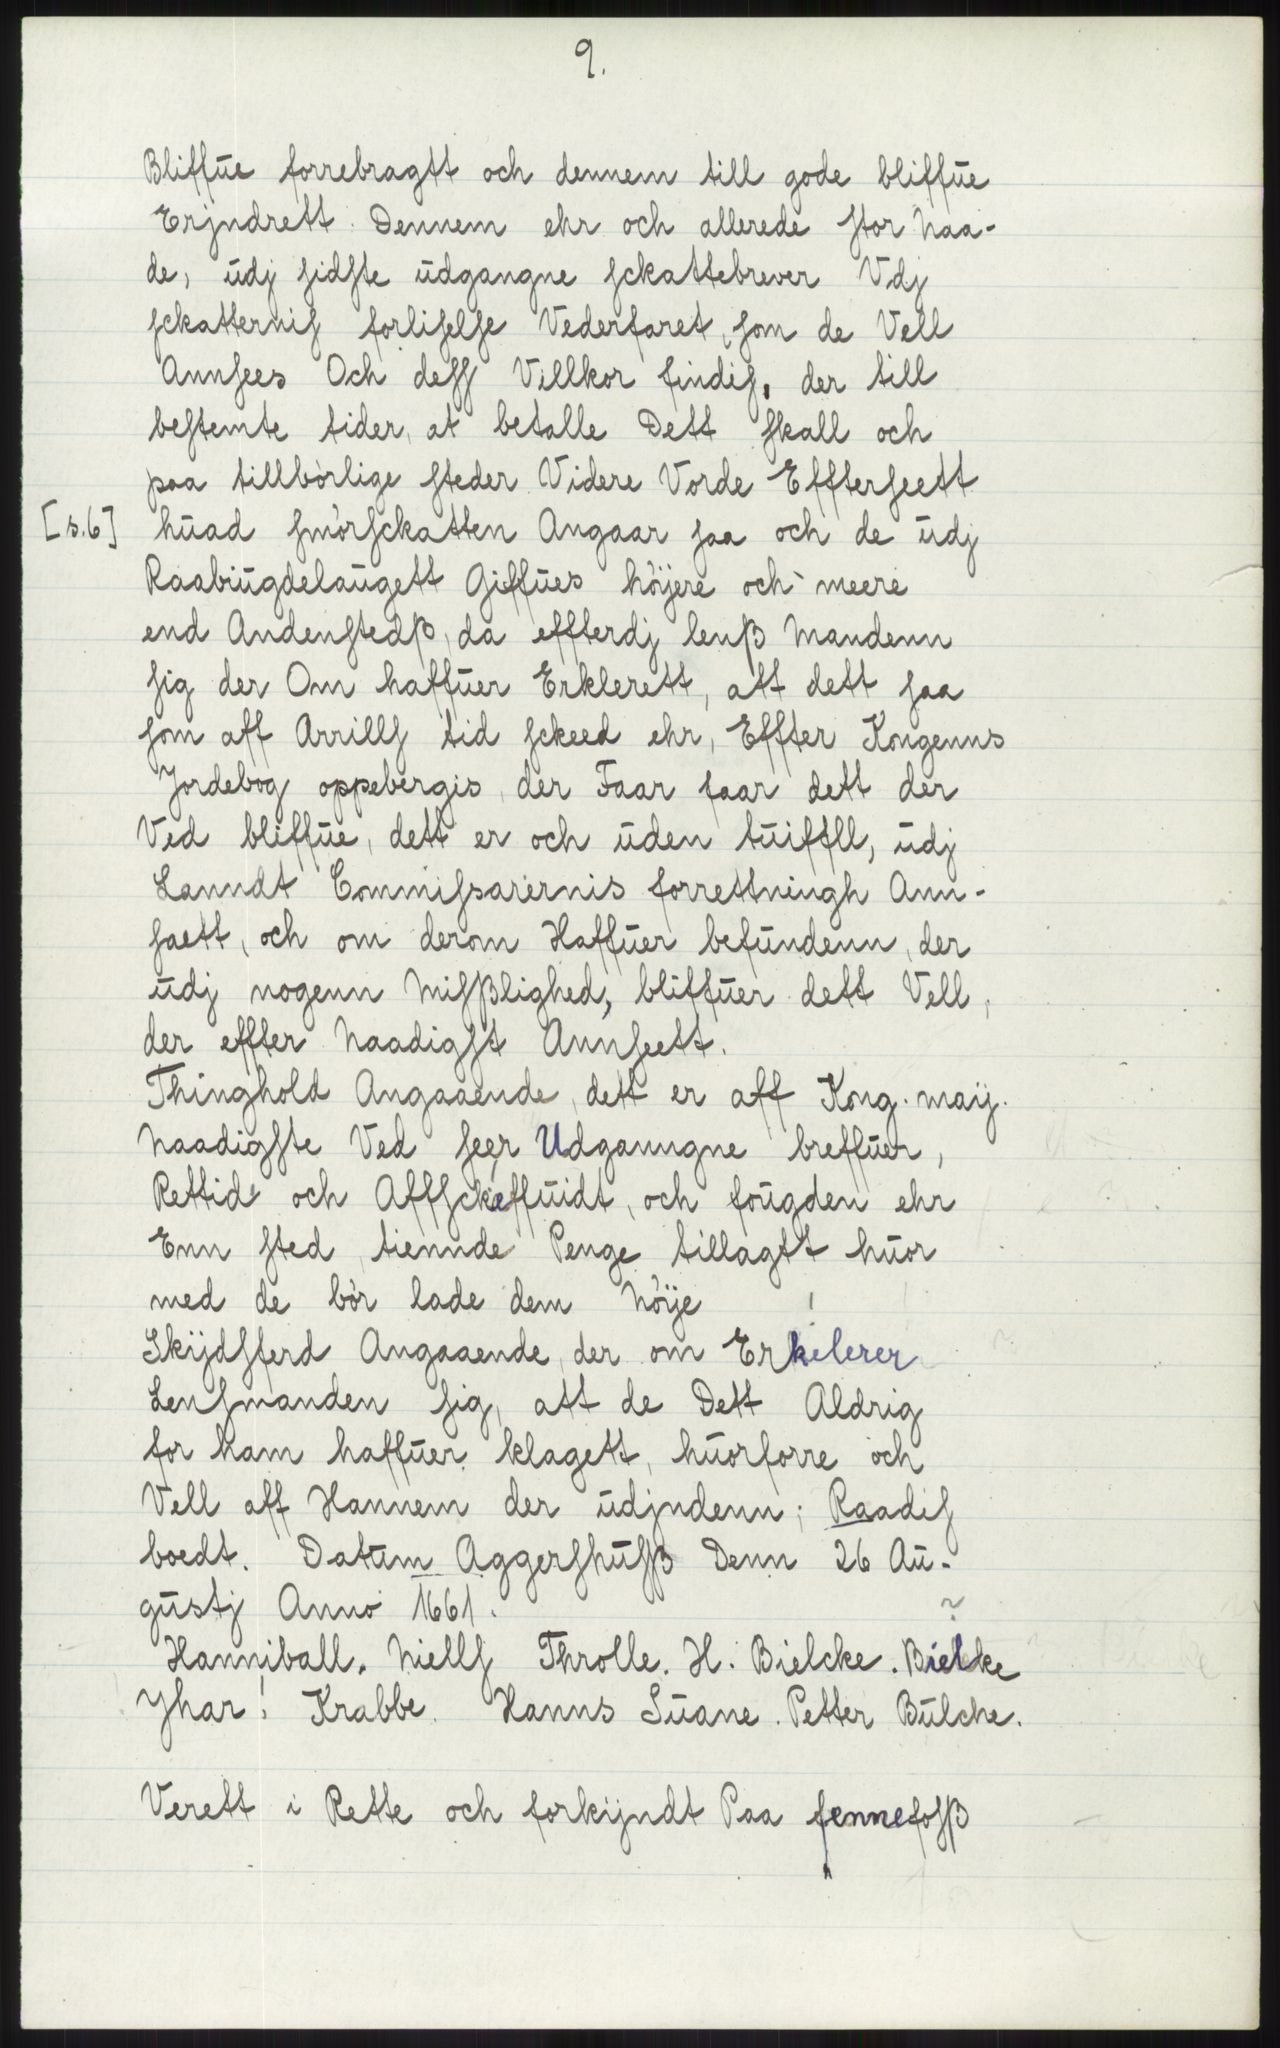 9.
Bliffue forrebragtt och dennem till gode bliffue
Erjndrett. Dennem ehr och allerede stor naa-
de, udj sidste udgangne sckattebrever Vdj
sckatternis forliselse Vederfaret, som de Vell
Annsees Och dess Villkor findis, der till
bestemte tider, at betalle Dett skall och
paa tillbörlige steder Videre Vorde Effterseett
[s.6] huad smörsckatten Angaar saa och de udj
Raabiugdelaugett Giffues höyere och meere
end Andenstedß, da effterdj lenß Mandenn
sig der Om haffuer Erklerett, att dett saa
som aff Arrills tid sckeed ehr, Effter Kongenns
Jordebog oppebergis, der Faar faar dett der
Ved bliffue, dett er och uden tuiffll, udj
Lanndt Commissariernis forrettningh Ann-
saett, och om derom Haffuer befundenn, der
udj nogenn Misßlighed, bliffuer dett Vell,
der effter Naadigst Annseett.
Thinghold Angaaende, dett er aff Kong. maij.
Naadigste Ved seer Udganngne breffuer,
Rettide och Affsckeffuidt, och fougden ehr
Enn sted tiennde Penge tillagtt huor
med de bör lade dem nöije !
Skijdsferd Angaaende, der om Erkelerer
Lensmanden sig, att de Dett Aldrig
for ham haffuer klagett, huorforre och
Vell aff Hannem der udjndenn; Raadis
boedt. Datum Aggershusß Denn 26 Au-
gustj Anno 1661. ?
Hanniball. Niells Throlle. H. Bielcke. Bielke
Jhar! Krabbe. Hanns Suane. Petter Bülche.
Verett i Rette och forkijndt Paa fennefosß